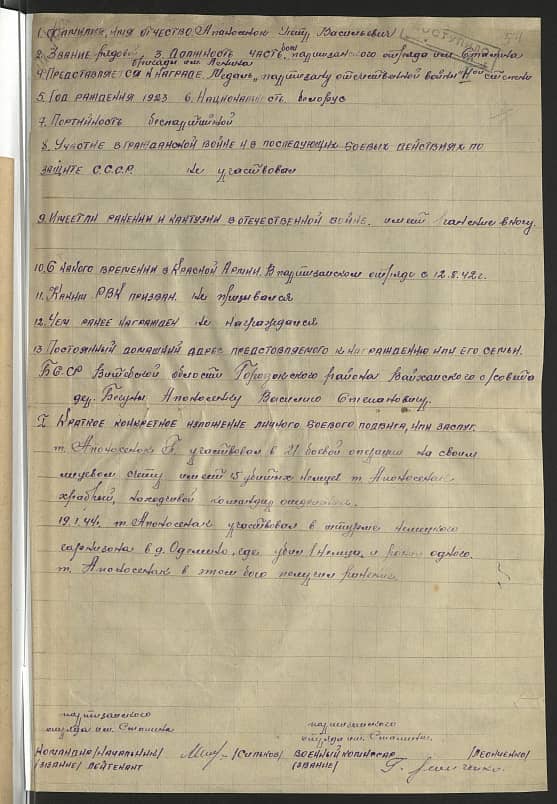 1. Фамилия, имя отчество Апоносенок Петр Васильевич
2. Звание рядовой, 3. Должность часть боец партизанского отряда им. Сталина
бригады им. Ленина
4. Представляется к награде Медаль, партизану отечественной войны II ой степени
5. Год раждения 1923 6. Национальность белорус
7. Портийность беспартийной
8. Участие в гражданской войне и в последующих боевых действиях по
защите С.С.С.Р. не участвовал
9. Имеет ли ранении и кантузии в отечественной войне. имеет ранение в ногу.
10. С какого времении в Красной Армии. В партизанском отряде с 12.8.42 г.
11. Каким РВК призван. не призывался
12. Чем ранее награжден не награждался
13 Постоянный домашний адрес предстовляемого к награждению или его семьи.
БССР Витебской области Городокского района Вайханского с/совета
дер. Бегуны Апоносенку Василию Степановичу.
I Краткое конкретное изложение личного боевого подвига, или заслуг.
т. Апоносенок П. участвовал в 21 боевой операции на своим
лицевом счету имеет 5 убитых немцев т. Апоносенок
храбрый, находчивой командир отделения.
19.1.44. т Апоносенок участвовал в штурме немецкого
гарнизона в д. где убил 1 немца, и ранил одного.
т. Апоносенок в этом бою получил ранение.
партизанского
отряда им. Сталина
партизанского
отряда им. Сталина
Командир/Начальник/ /Сипков/ Военный комиссар /Леонченко/
/Звание/ лейтенант /звание/